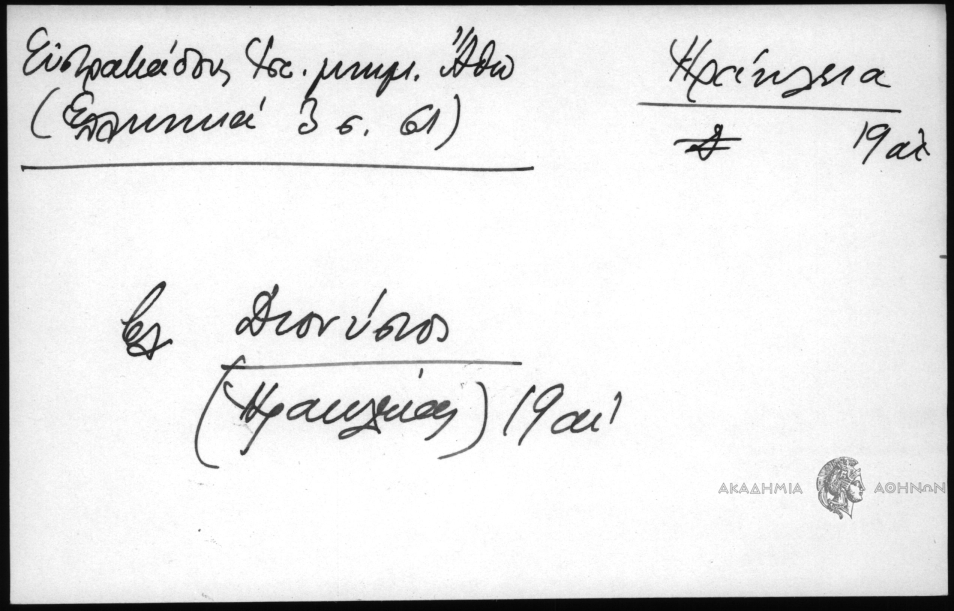 Εὐστρατιάδης Ἱστ. μνημ. Ἄθω
(Ἑλληνικά 3 σ. 61)
Ἡράκλεια
19 αἰ
Διονύσιος
(Ἡρακλείας) 19 αἰ
ΑΚΑΔΗΜΙΑ ΑΘΗΝΩΝ